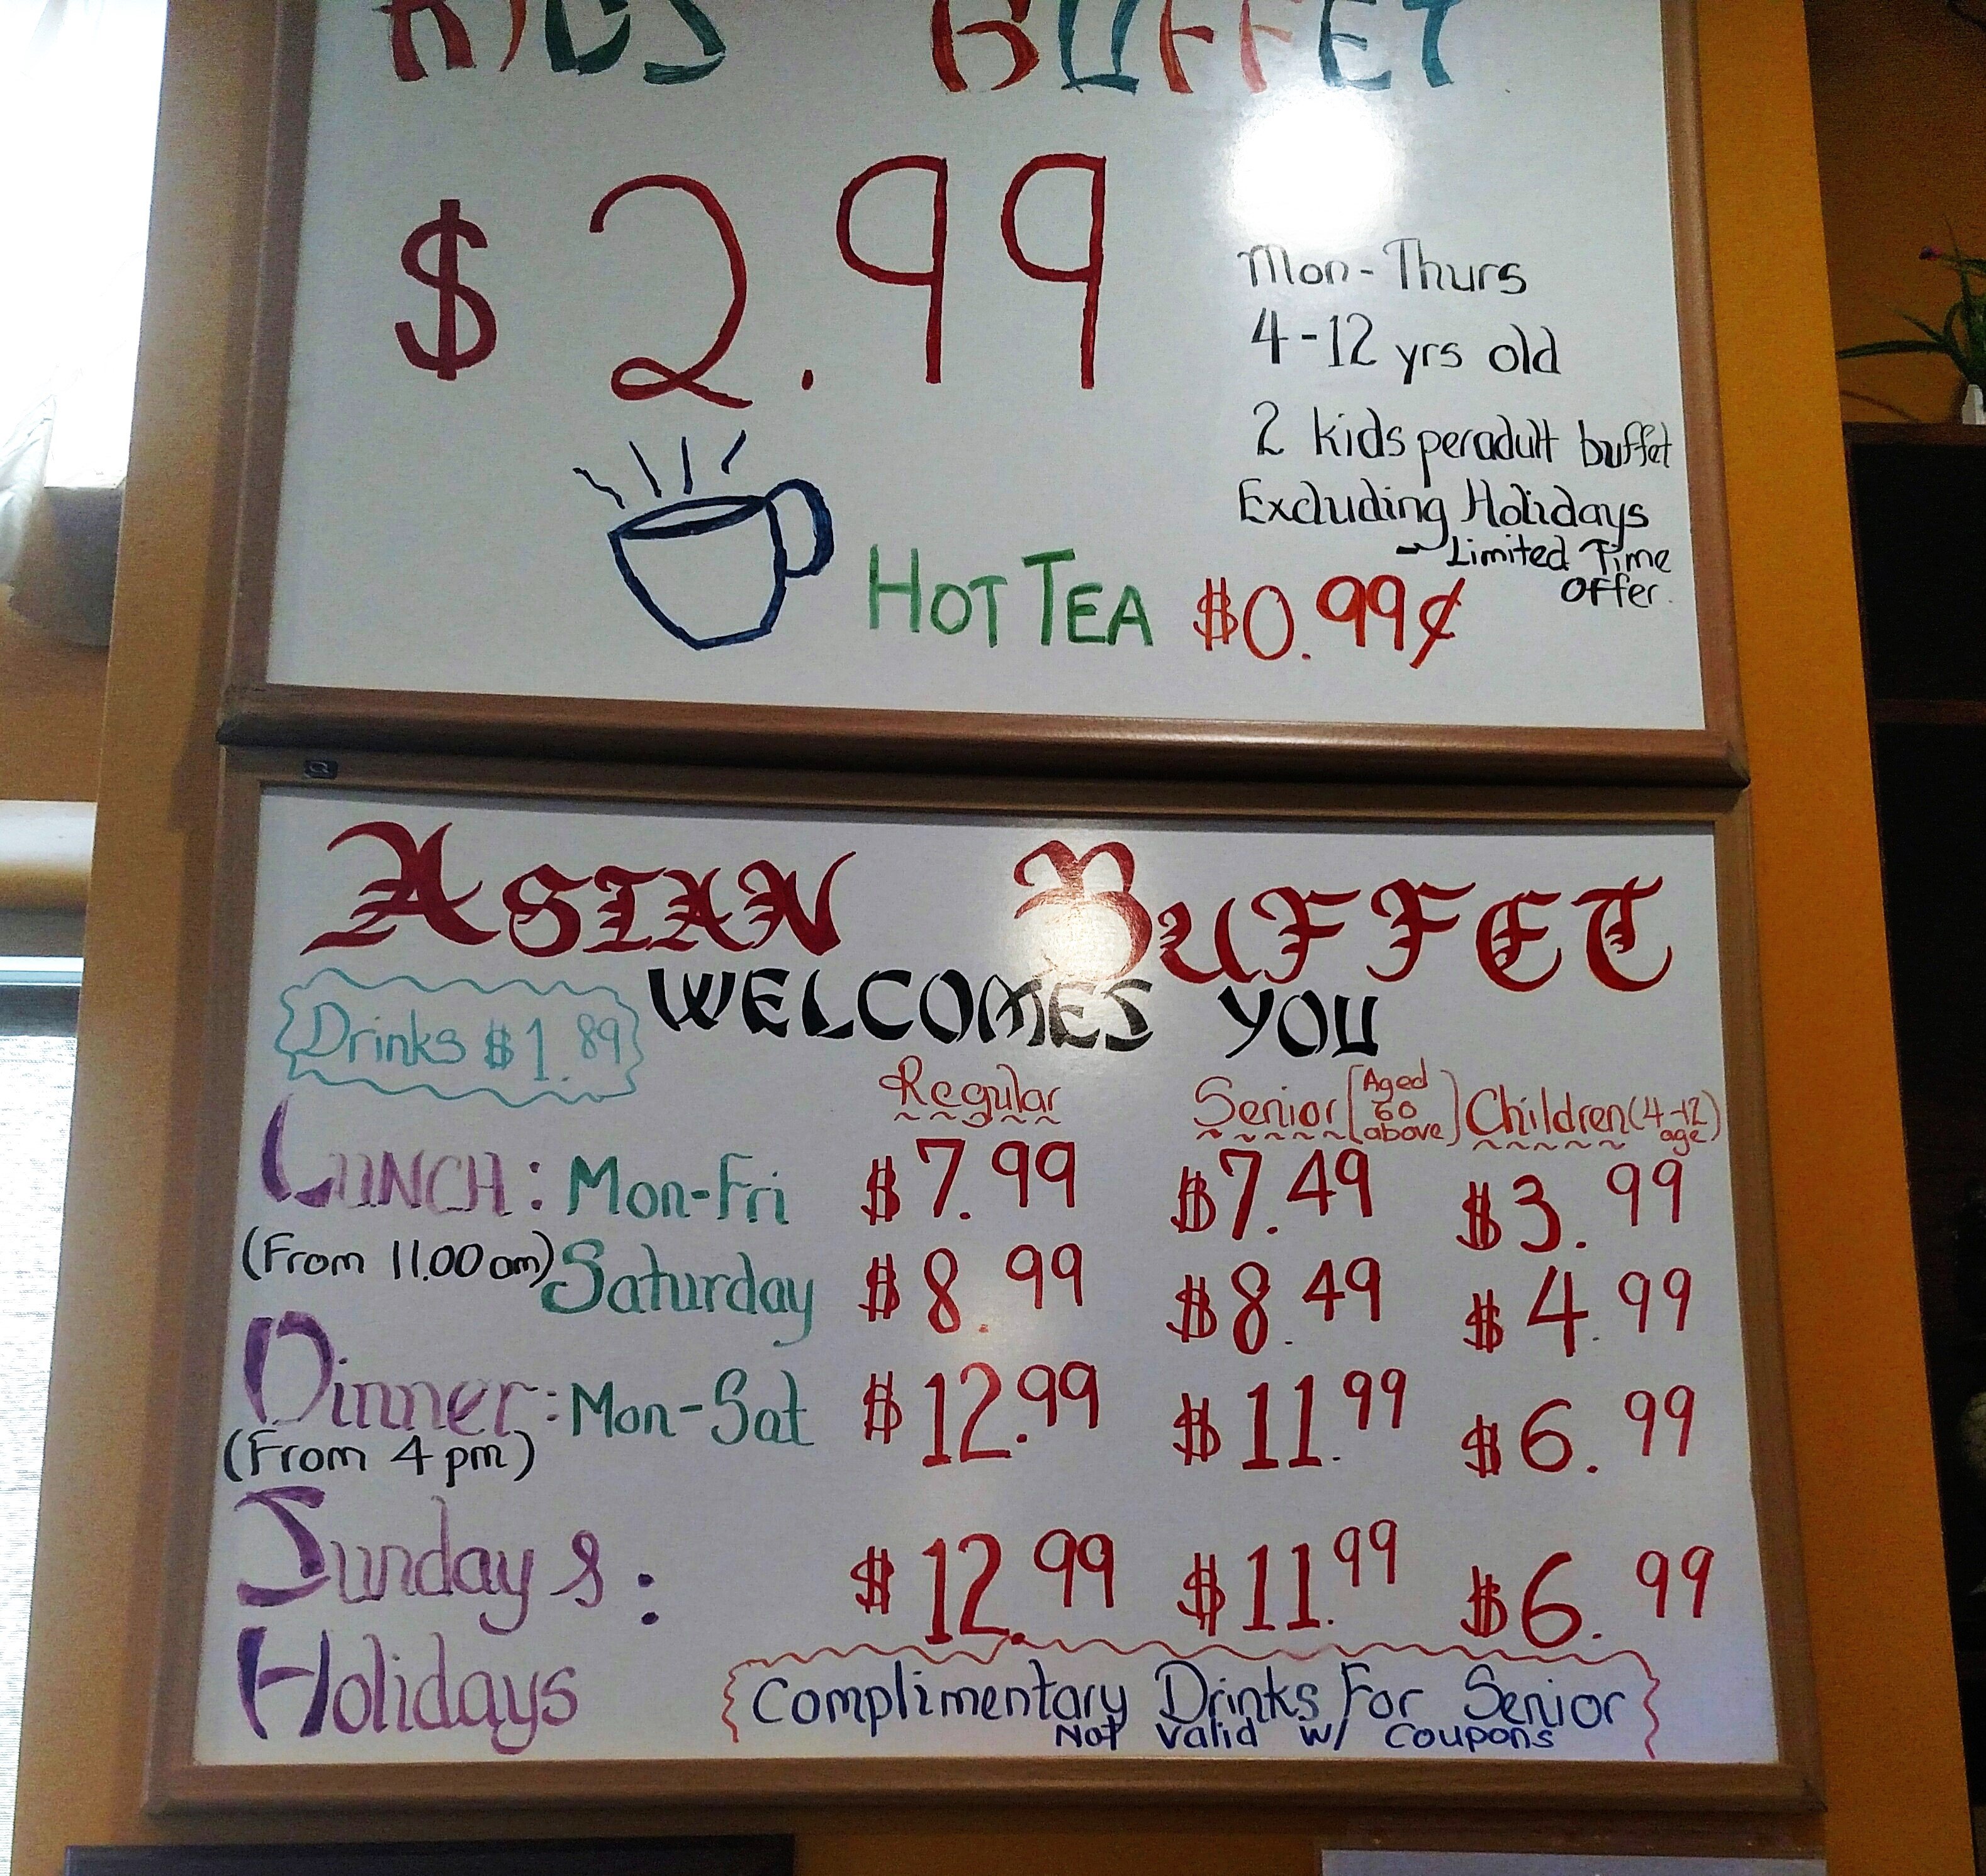 KIDS BUFFET
$2.99
Mon-Thurs
4-12 yrs old
2 kids peradult buffet
Excluding Holidays
- Limited Time
Offer.
HOT TEA $0.99¢
ASIAN BUFFET
WELCOMES YOU
Drinks $1.89
Regular Senior [Aged 60 above] Children (4-12 age)
LUNCH: Mon-Fri $7.99 $7.49 $3.99
(From 11.00am) Saturday $8.99 $8.49 $4.99
Dinner: Mon-Sat $12.99 $11.99 $6.99
(From 4pm)
Sunday & : $12.99 $11.99 $6.99
Holidays
{Complimentary Drinks For Senior}
Not Valid w/ Coupons